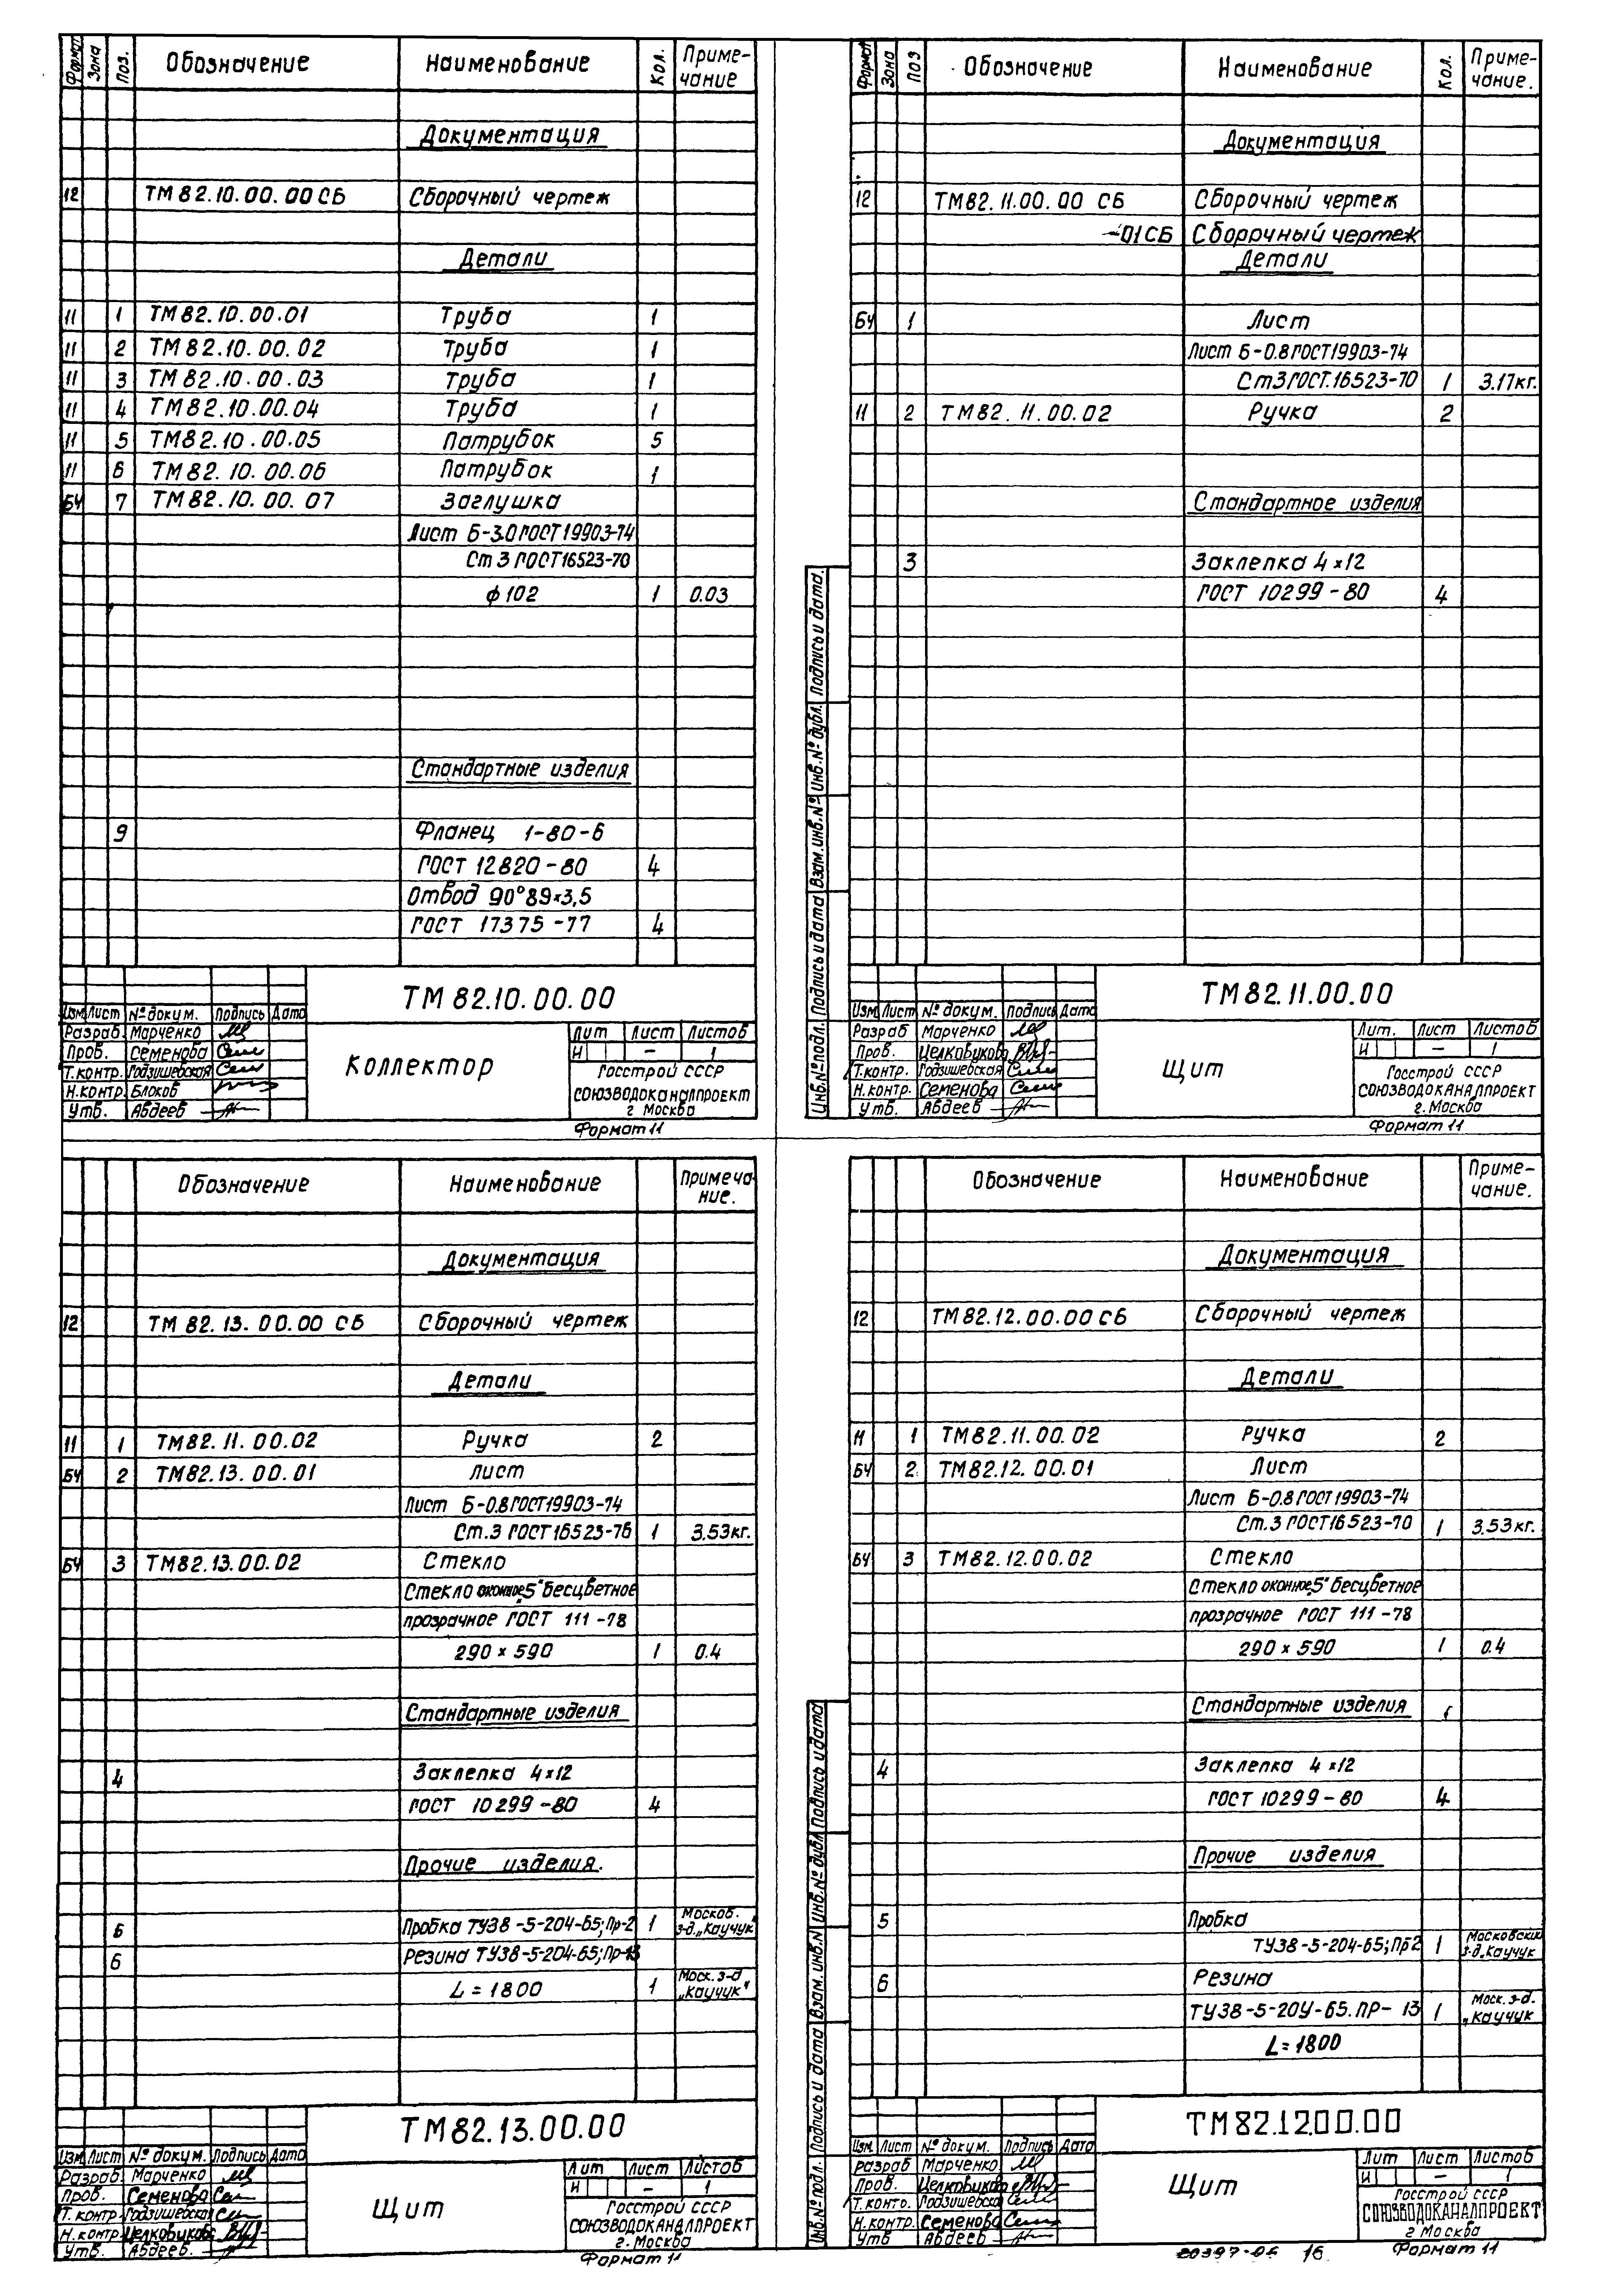 Формат Зона Поз. Обозначение Наименование Кол. Примечание
Документация
12 ТМ 82.10.00.00 СБ Сборочный чертеж
Детали
11 1 ТМ 82.10.00.01 Труба 1
11 2 ТМ 82.10.00.02 Труба 1
11 3 ТМ 82.10.00.03 Труба 1
11 4 ТМ 82.10.00.04 Труба 1
11 5 ТМ 82.10.00.05 Патрубок 5
11 6 ТМ 82.10.00.06 Патрубок 1
БЧ 7 ТМ 82.10.00.07 Заглушка
Лист Б-3.0 ГОСТ 19903-74
Ст 3 ГОСТ 16523-70
ф 102 1 0.03
Стандартные изделия
9 Фланец 1-80-6
ГОСТ 12820-80 4
Отвод 90° 89×3,5
ГОСТ 17375-77 4
ТМ 82.10.00.00
Изм Лист № докум. Подпись Дата
Разраб Марченко
Пров. Семенова
Т.контр. Годзишевская
Н.контр. Блохов
Утв. Авдеев
Коллектор
Лит Лист Листов
И – 1
Госстрой СССР
СОЮЗВОДОКАНАЛПРОЕКТ
г Москва
Формат 11
Формат Зона Поз Обозначение Наименование Кол. Примечание.
Документация
12 ТМ82.11.00.00 СБ Сборочный чертеж
-01СБ Сборочный чертеж
Детали
БЧ 1 Лист
Лист Б-0.8 ГОСТ 19903-74
Ст3 ГОСТ.16523-70 1 3.17кг.
11 2 ТМ82.11.00.02 Ручка 2
Стандартное изделия
3 Заклепка 4×12
ГОСТ 10299-80 4
Инв.№ подл. Подпись и дата Взам.инв.№ Инв.№ дубл. Подпись и дата.
ТМ82.11.00.00
Изм Лист № докум. Подпись Дата
Разраб Марченко
Пров. Целковикова
Т.контр. Годзишевская
Н.контр. Семенова
Утв. Авдеев
Щит
Лит. Лист Листов
И – 1
Госстрой СССР
СОЮЗВОДОКАНАЛПРОЕКТ
г. Москва
Формат 11
Обозначение Наименование Примечание.
Документация
12 ТМ 82.13.00.00 СБ Сборочный чертеж
Детали
11 1 ТМ82.11.00.02 Ручка 2
БЧ 2 ТМ82.13.00.01 Лист
Лист Б-0.8 ГОСТ 19903-74
Ст.3 ГОСТ 16523-76 1 3.53кг.
БЧ 3 ТМ82.13.00.02 Стекло
Стекло оконное,5" бесцветное
прозрачное ГОСТ 111-78
290 × 590 1 0.4
Стандартные изделия
4 Заклепка 4×12
ГОСТ 10299-80 4
Прочие изделия.
Б Пробка ТУ38-5-204-65; Пр-2 1 Москов. з-д „Каучук"
6 Резина ТУ38-5-204-65; Пр-13
L = 1800 1 Моск. з-д „Каучук"
ТМ82.13.00.00
Изм Лист № докум. Подпись Дата
Разраб. Марченко
Пров. Семенова
Т. контр. Годзишевская
Н. контр. Целковикова
Утв. Авдеев.
Щит
Лит Лист Листов
И – 1
Госстрой СССР
СОЮЗВОДОКАНАЛПРОЕКТ
г. Москва
Формат 11
Обозначение Наименование Примечание.
Документация
12 ТМ82.12.00.00 СБ Сборочный чертеж
Детали
11 1 ТМ82.11.00.02 Ручка 2
БЧ 2 ТМ82.12.00.01 Лист
Лист Б-0.8 ГОСТ 19903-74
Ст.3 ГОСТ 16523-70 1 3.53кг.
БЧ 3 ТМ82.12.00.02 Стекло
Стекло оконное,5" бесцветное
прозрачное ГОСТ 111-78
290 × 590 1 0.4
Стандартные изделия
4 Заклепка 4×12
ГОСТ 10299-80 4
Прочие изделия
5 Пробка
ТУ38-5-204-65; Пр2 1 Московский з-д „Каучук
6 Резина
ТУ38-5-20У-65. ПР-13 1 Моск. з-д. „Каучук
L=1800
Инв.№ подл. Подпись и дата Взам. инв.№ Инв.№ дубл Подпись и дата
ТМ82.1200.00
Изм Лист № докум. Подпись Дата
Разраб Марченко
Пров. Целковикова
Т.контр. Годзишевская
Н.контр. Семенова
Утв Авдеев
Щит
Лит Лист Листов
И – 1
Госстрой СССР
СОЮЗВОДОКАНАЛПРОЕКТ
г Москва
16 Формат 11